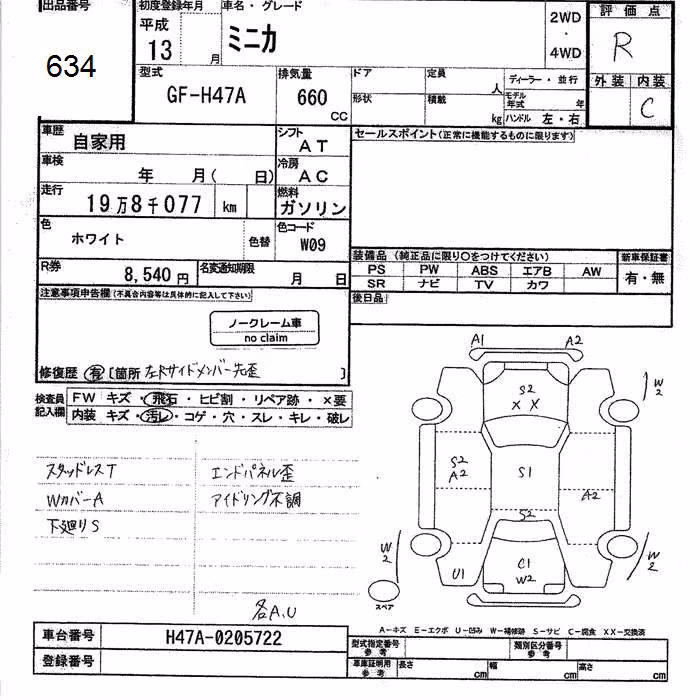 出品番号
634
初度登録年月
平成
13 月
車名・グレード
ミニカ
2WD
・
4WD
評価点
R
外装 内装
C
型式
GF-H47A
排気量
660
CC
ドア
定員
人
形状
積載
kg
ディーラー・並行
モデル年式 年
ハンドル 左・右
車歴
自家用
シフト
AT
車検
年 月( 日)
冷房
AC
走行
19万8千077 km
燃料
ガソリン
色
ホワイト
色替
色コード
W09
R券
8,540円
名変通知期限
月 日
セールスポイント(正常に機能するものに限ります)
装備品 (純正品に限り○をつけてください)
新車保証書
PS PW ABS エアB AW
SR ナビ TV カワ
有・無
後日品
注意事項申告欄(不具合内容等は具体的に記入して下さい)
ノークレーム車
no claim
修復歴 有 [箇所 左Rサイドメンバー先歪 ]
検査員記入欄
FW キズ・飛石・ヒビ割・リペア跡・×要
内装 キズ・汚レ・コゲ・穴・スレ・キレ・破レ
スタッドレスT
WカバーA
下廻りS
エンドパネル歪
アイドリング不調
各A.U
A1 A2
S2
X X
W2
S2
A2
S1
A2
S2
W2
U1
C1
W2
W2
スペア
A-キズ E-エクボ U-凹み W-補修跡 S-サビ C-腐食 XX-交換済
車台番号
H47A-0205722
登録番号
型式指定番号
参考
類別区分番号
参考
車庫証明用
参考
長さ cm
幅 cm
高さ cm